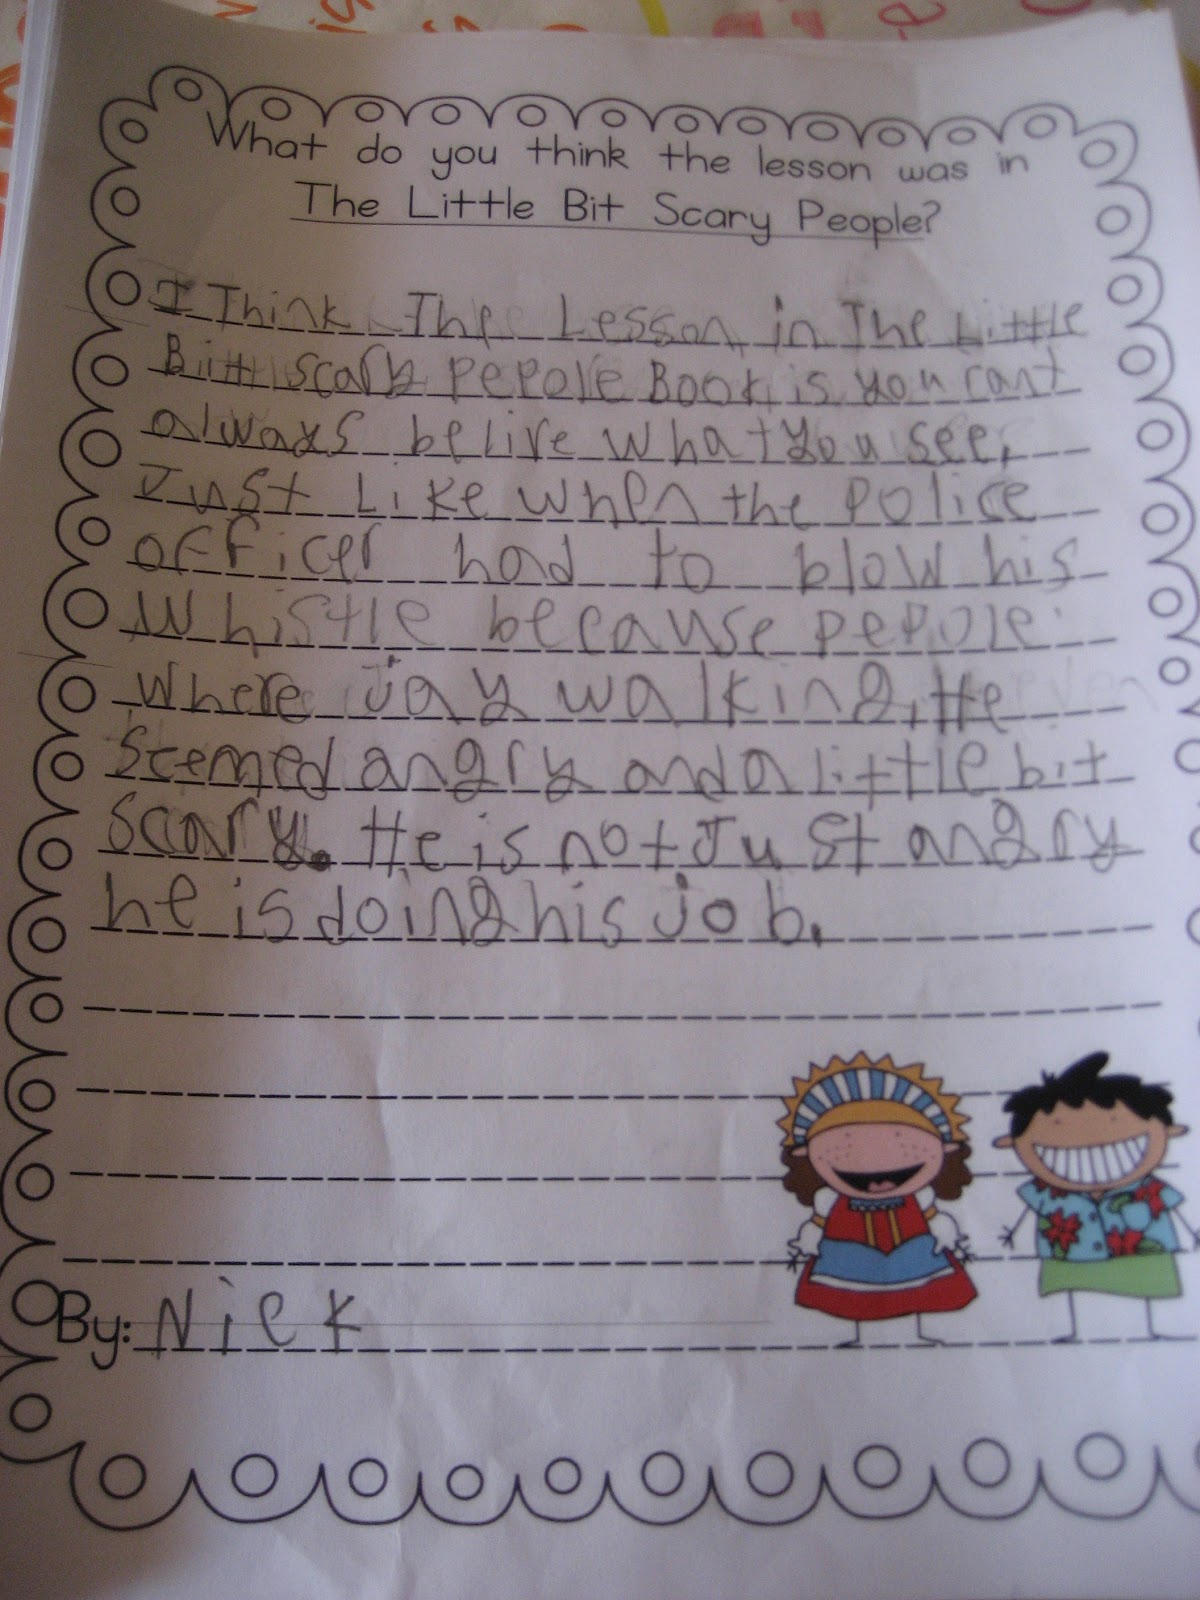 What do you think the lesson was in
The Little Bit Scary People?
I Think The Lesson in The Little
Bit scary pepole Book is you cant
always belive what you see,
Just Like when the police
officer had to blow his
whistle because pepole
where jay walking, He
seemed angry and a little bit
scary. He is not Just angry
he is doing his job.
By: Nick